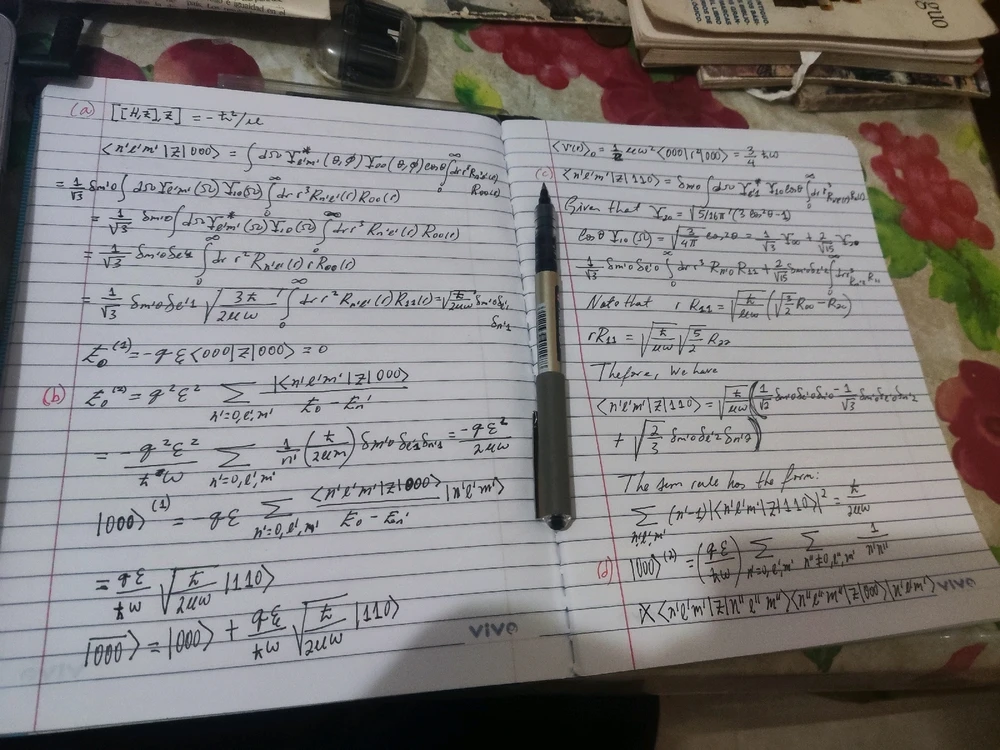 (a) [[H,Z],Z] = -ħ²/μ
<n'l'm'|Z|000> = ∫dΩ Y*l'm'(θ,φ) Y00(θ,φ) cosθ ∫₀^∞ dr r³ Rn'l'(r) R00(r)
= 1/√3 δm'0 ∫dΩ Yl'm'(Ω) Y10(Ω) ∫₀^∞ dr r³ Rn'l'(r) R00(r)
= 1/√3 δm'0 ∫dΩ Y*l'm'(Ω) Y10(Ω) ∫₀^∞ dr r³ Rn'l'(r) R00(r)
= 1/√3 δm'0 δl'1 ∫₀^∞ dr r² Rn'l'(r) r R00(r)
= 1/√3 δm'0 δl'1 √(3ħ/2μω) ∫₀^∞ dr r² Rn'l'(r) R11(r) = √(ħ/2μω) δm'0 δl'1
δn'1
E₀⁽¹⁾ = -qε<000|Z|000> = 0
(b) E₀⁽²⁾ = q²ε² Σ n'=0,l',m' |<n'l'm'|Z|000>/(E₀ - En')
= -q²ε²/ħω Σ n'=0,l',m' 1/n' (ħ/2μω) δm'0 δl'1 δn'1 = -qε²/2μω
|000>⁽¹⁾ = -qε Σ n'=0,l',m' <n'l'm'|Z|000>/(E₀ - En') |n'l'm'>
= qε/ħω √(ħ/2μω) |110>
|000> = |000> + qε/ħω √(ħ/2μω) |110>
vivo
<V(r)>₀ = 1/2 μω² <000|r²|000> = 3/4 ħω
(c) <n'l'm'|Z|110> = δm'0 ∫dΩ Y*l'1 Y10 cosθ ∫₀^∞ dr r³
Given that Y20 = √(5/16π) (3cos²θ-1)
cosθ Y10(Ω) = √(3/4π) cos²θ = 1/√3 Y00 + 2/√15 Y20
1/√3 δm'0 δl'0 ∫₀^∞ dr r³ Rn'0 R11 + 2/√15 δm'0 δl'2 ∫₀^∞ dr r³ Rn'2 R11
Note that r R11 = √(ħ/μω) (√(3/2) R00 - R20)
rR11 = √(ħ/μω) √(5/2) R22
Therfore, we have
<n'l'm'|Z|110> = √(ħ/μω) (1/√2 δm'0 δl'0 δn'0 - 1/√3 δm'0 δl'0 δn'2
+ √(2/3) δm'0 δl'2 δn'2)
The sum rule has the form:
Σ n'l'm' (n'-1)|<n'l'm'|Z|110>|² = ħ/2μω
(d) |000>⁽²⁾ = (qε/ħω) Σ n'=0,l',m' Σ n''≠0,l'',m' 1/n'n''
X <n'l'm'|Z|n''l''m''><n''l''m''|Z|000>|n'l'm'>
vivo